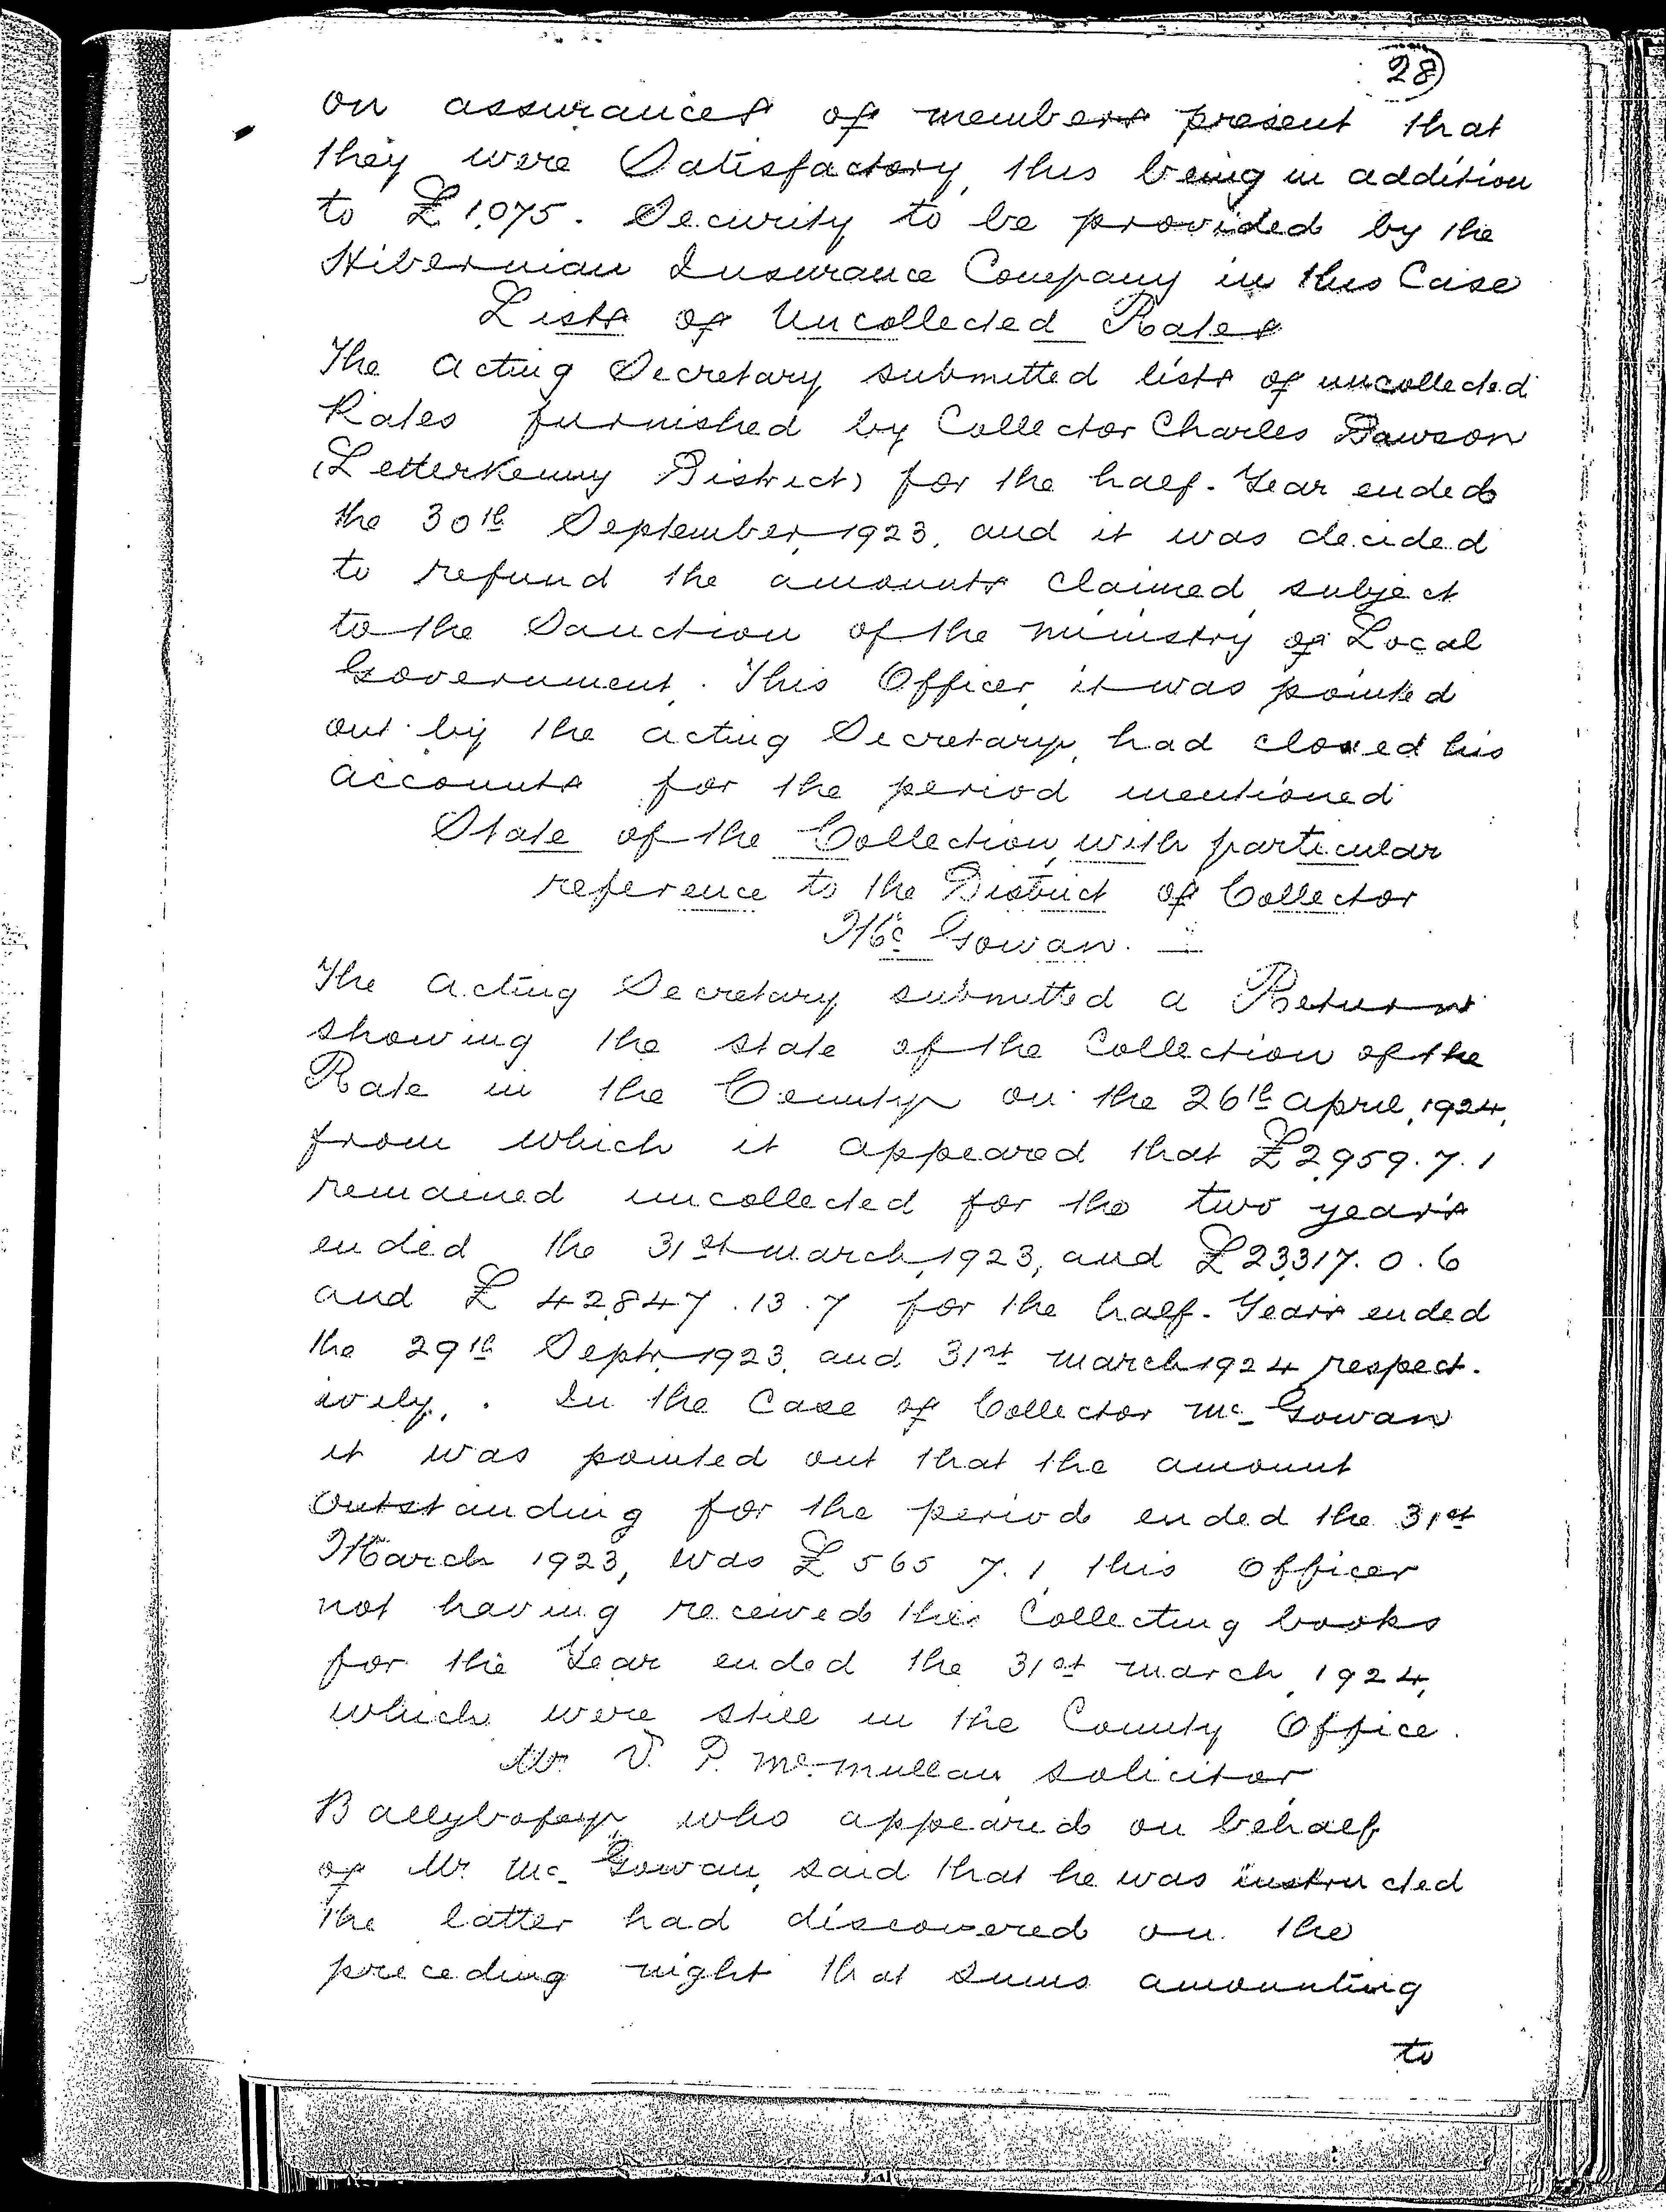 28
on assurances of members present that
they were Satisfactory, this being in addition
to £1,075. Security to be provided by the
Hibernian Insurance Company in this Case
Lists of Uncollected Rates
The Acting Secretary submitted lists of uncollected
Rates furnished by Collector Charles Dawson
(Letterkenny District) for the half-Year ended
the 30th September, 1923, and it was decided
to refund the amounts claimed, subject
to the Sanction of the Ministry of Local
Government. This Officer, it was pointed
out by the Acting Secretary, had closed his
accounts for the period mentioned
State of the Collection, with particular
reference to the District of Collector
McGowan.
The Acting Secretary submitted a Return
showing the state of the Collection of the
Rate in the County on the 26th April, 1924,
from which it appeared that £2,959.7.1
remained uncollected for the two years
ended the 31st March, 1923, and £23,317.0.6
and £42,847.13.7 for the half-Years ended
the 29th Septr. 1923, and 31st March 1924 respect-
ively. In the Case of Collector McGowan
it was pointed out that the amount
outstanding for the period ended the 31st
March 1923, was £565 7.1, this Officer
not having received the Collecting books
for the Year ended the 31st March, 1924,
which were still in the County Office.
Mr V. P. McMullan solicitor
Ballybofey who appeared on behalf
of Mr. McGowan, said that he was instructed
the latter had discovered on the
preceding night that sums amounting
to